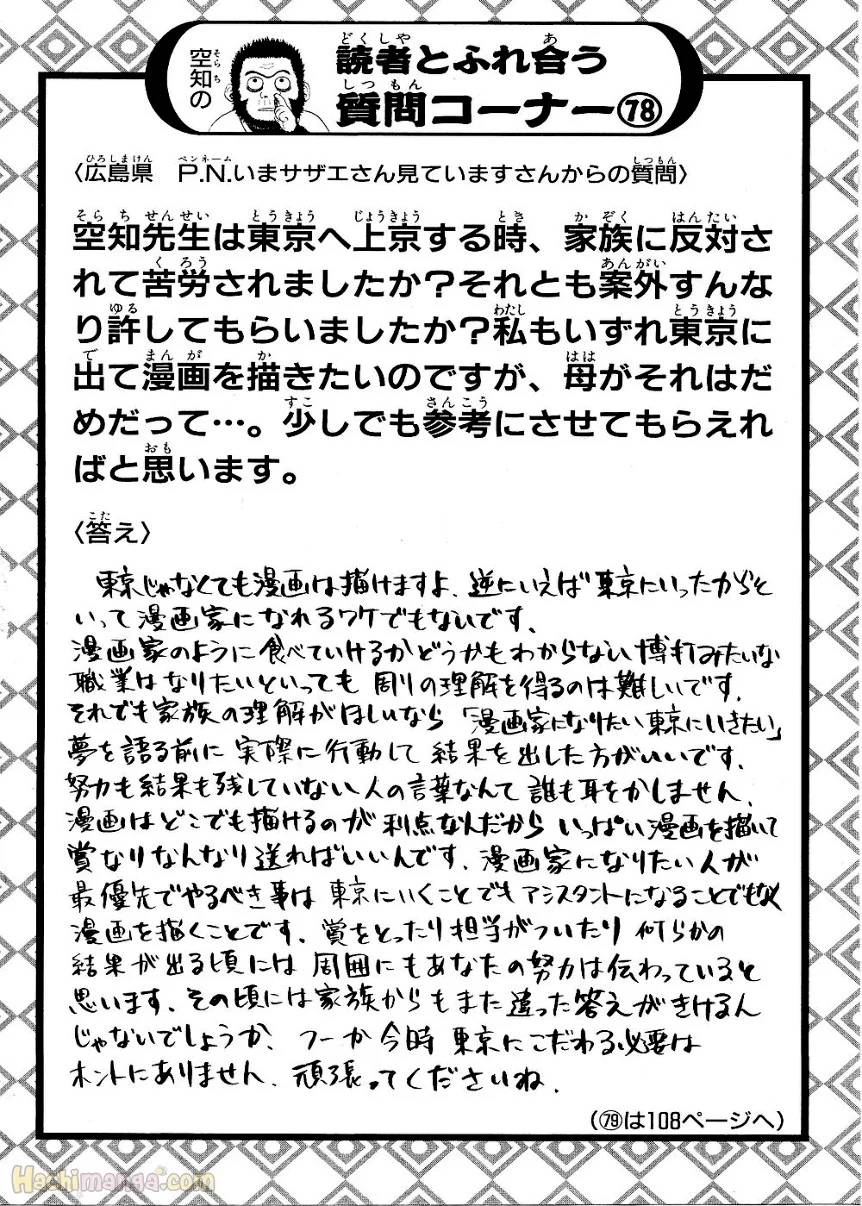 空知の
読者とふれ合う
質問コーナー㊆㊇
〈広島県 P.N.いまサザエさん見ていますさんからの質問〉
空知先生は東京へ上京する時、家族に反対さ
れて苦労されましたか？それとも案外すんな
り許してもらいましたか？私もいずれ東京に
出て漫画を描きたいのですが、母がそれはだ
めだって…。少しでも参考にさせてもらえれ
ばと思います。
〈答え〉
東京じゃなくても漫画は描けますよ、逆にいえば東京にいったからと
いって漫画家になれるワケでもないです、
漫画家のように食べていけるかどうかもわからない博打みたいな
職業はなりたいといっても周りの理解を得るのは難しいです、
それでも家族の理解がほしいなら「漫画家になりたい東京にいきたい」
夢を語る前に実際に行動して結果を出した方がいいです、
努力も結果も残していない人の言葉なんて誰も耳をかしません、
漫画はどこでも描けるのが利点なんだからいっぱい漫画を描いて
賞なりなんなり送ればいいんです、漫画家になりたい人が
最優先でやるべき事は東京にいくことでもアシスタントになることでもなく
漫画を描くことです、賞をとったり担当がついたり何らかの
結果が出る頃には周囲にもあなたの努力は伝わっていると
思います、その頃には家族からもまた違った答えがきけるん
じゃないでしょうか、つーか今時東京にこだわる必要は
ホントにありません、頑張ってくださいね、
（㊆㊈は108ページへ）
Hachimanga.com